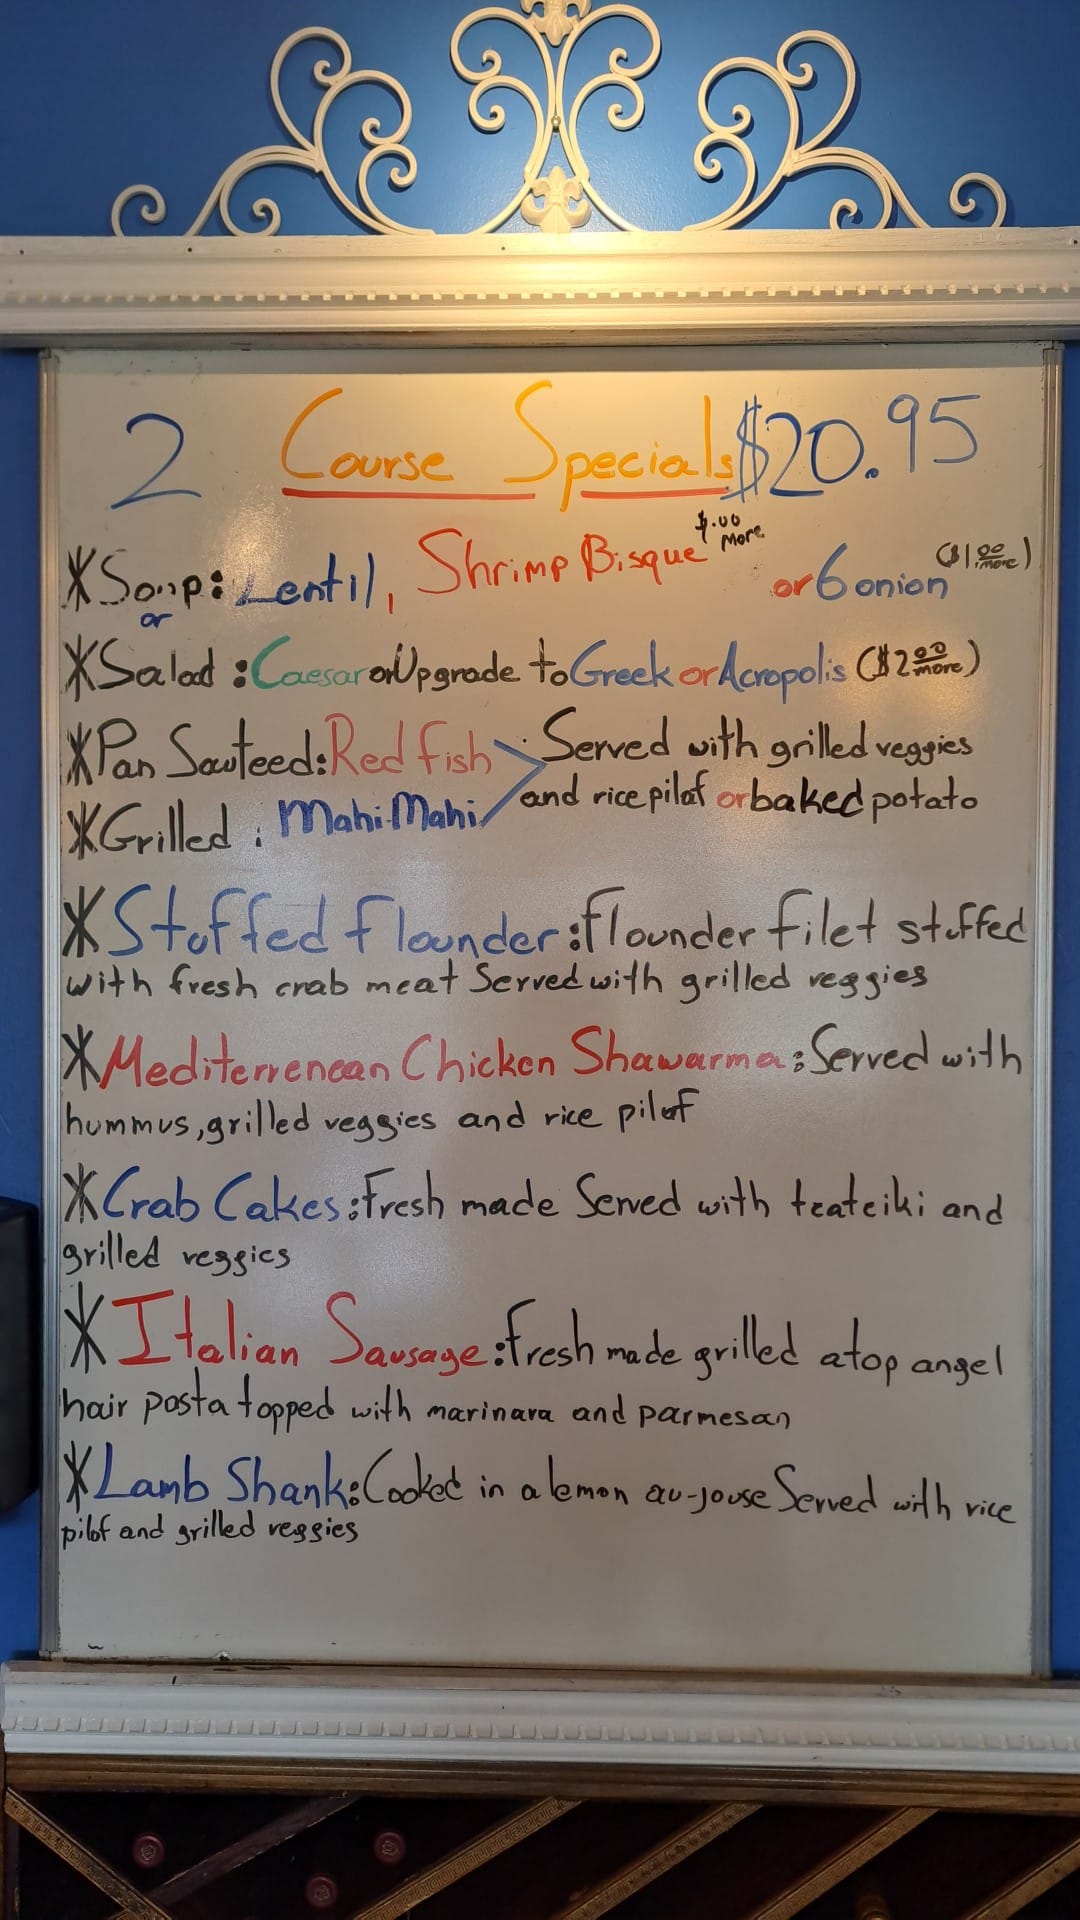 2 Course Specials $20.95
*Soup: Lentil, Shrimp Bisque $.00 more or 6 onion ($1.00 more)
or
*Salad: Caesar or Upgrade to Greek or Acropolis ($2.00 more)
*Pan Sauteed: Red fish > Served with grilled veggies
and rice pilaf or baked potato
*Grilled: Mahi-Mahi
*Stuffed flounder: flounder filet stuffed
with fresh crab meat Served with grilled veggies
*Mediterrenean Chicken Shawarma: Served with
hummus, grilled veggies and rice pilaf
*Crab Cakes: Fresh made Served with tzatziki and
grilled veggies
*Italian Sausage: Fresh made grilled atop angel
hair pasta topped with marinara and parmesan
*Lamb Shank: Cooked in a lemon au-jouse Served with rice
pilaf and grilled veggies